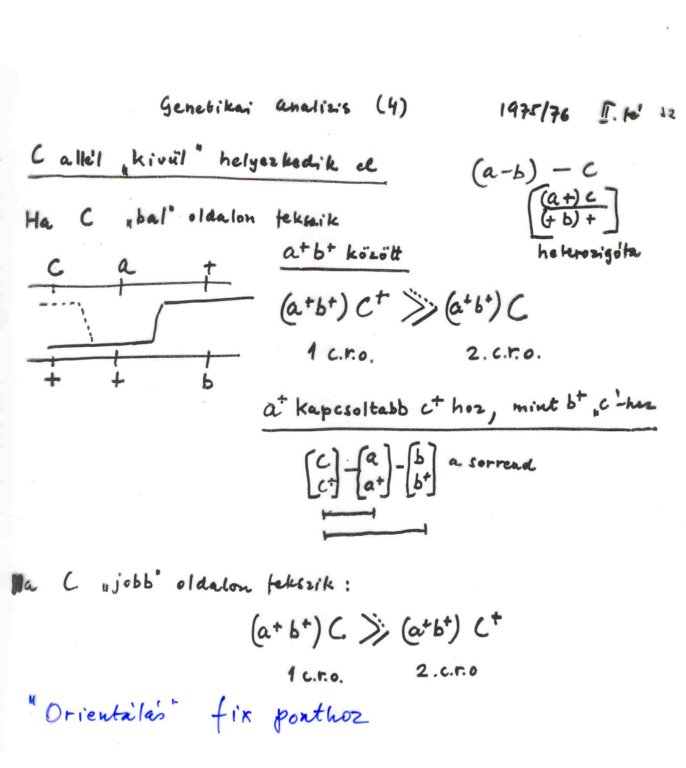 Genetikai analízis (4) 1975/76 II. fé
C allél „kívül" helyezkedik el
(a-b) - C
[(a+) c
(+ b) +]
heterozigóta
Ha C „bal" oldalon fekszik
a⁺b⁺ között
C a +
+ + b
(a⁺b⁺) C⁺ ⋙ (a⁺b⁺) C
1 c.r.o. 2. c.r.o.
a⁺ kapcsoltabb c⁺ hoz, mint b⁺ „c"-hez
[C c⁺] - [a a⁺] - [b b⁺] a sorrend
Ha C „jobb" oldalon fekszik :
(a⁺ b⁺) C ⋙ (a⁺b⁺) C⁺
1 c.r.o. 2. c.r.o
"Orientálás" fix ponthoz